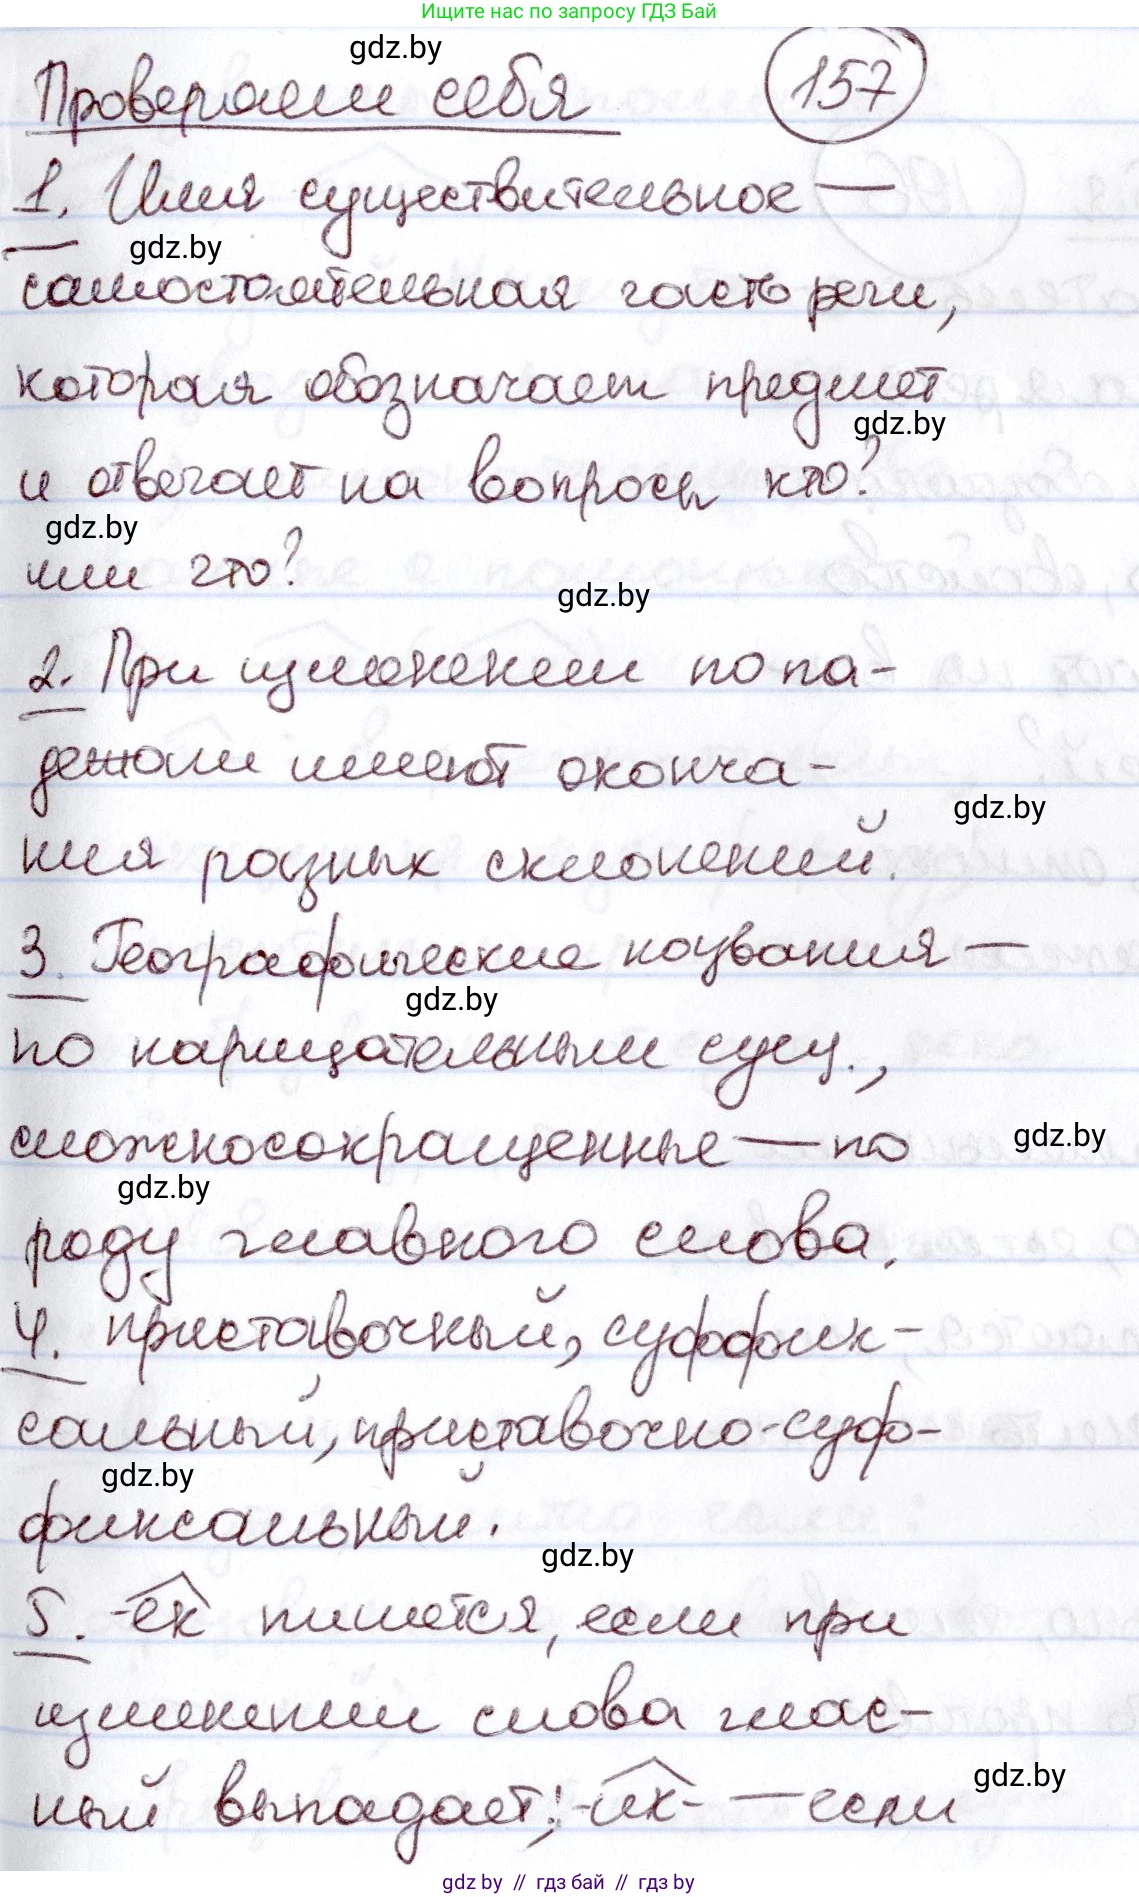 Ищите нас по запросу ГДЗ Бай
gdz.by
Проверяем себя 157
1. Имя существительное —
gdz.by
самостоятельная часть речи,
которая обозначает предмет
gdz.by
и отвечает на вопросы кто?
gdz.by
или что?
gdz.by
2. При изменении по па-
дежам имеют оконча-
gdz.by
ния разных склонений.
3. Географические названия —
gdz.by
по нарицательным сущ.,
сложносокращенные — по
gdz.by
gdz.by
роду главного слова.
4. приставочный, суффик-
сальный, приставочно-суф-
gdz.by
фиксальный.
gdz.by
5. -ек пишется, если при
изменении слова глас-
gdz.by
ный выпадает; -ик- — если
gdz.by // гдз бай // гдз by